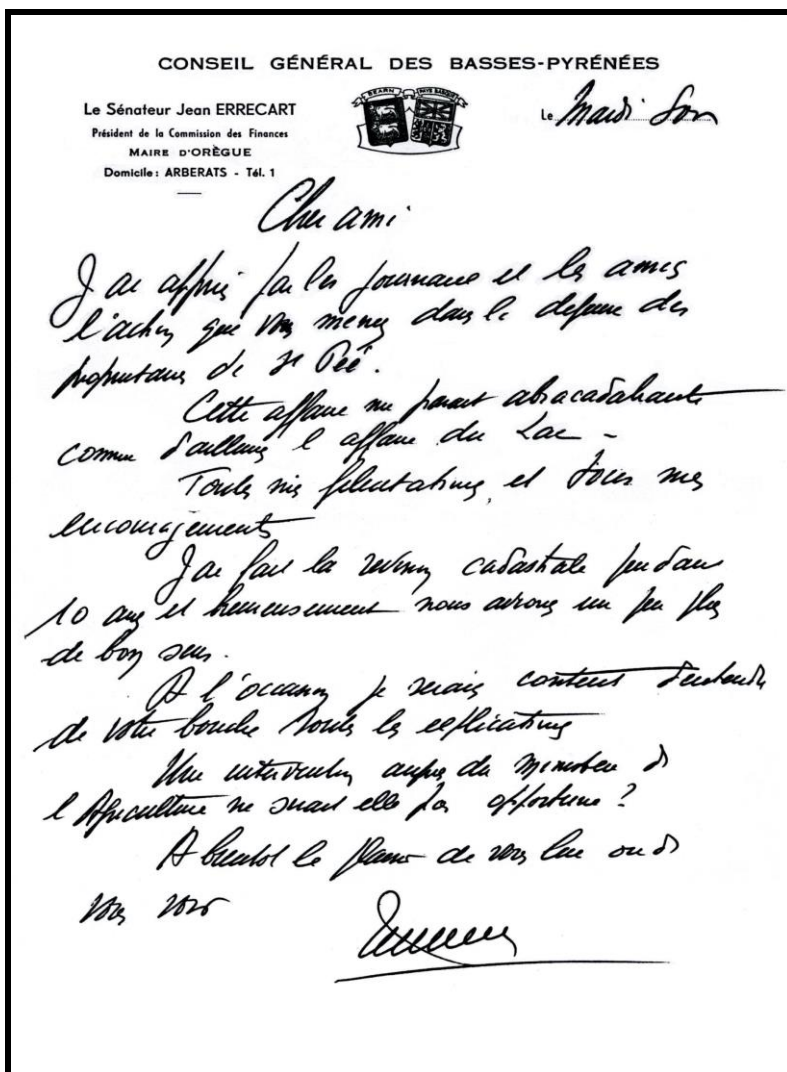 CONSEIL GÉNÉRAL DES BASSES-PYRÉNÉES
Le Sénateur Jean ERRECART
Président de la Commission des Finances
MAIRE D'ORÈGUE
Domicile : ARBERATS - Tél. 1
BEARN PAYS BASQUE
Le Mardi Soir
Cher ami
J'ai appris par les journaux et les amis
l'action que vous menez dans la défense des
propriétaires de St Peé.
Cette affaire me parait abracadabrante
comme d'ailleurs l'affaire du Lac -
Toutes mes félicitations et tous mes
encouragements
J'ai fait la révision cadastrale pendant
10 ans et heureusement nous avions un peu plus
de bon sens.
A l'occasion je serais content d'entendre
de votre bouche toutes les explications
Une intervention auprès du Ministère de
l'Agriculture ne serait elle pas opportune ?
A bientôt le plaisir de vous lire ou de
vous voir